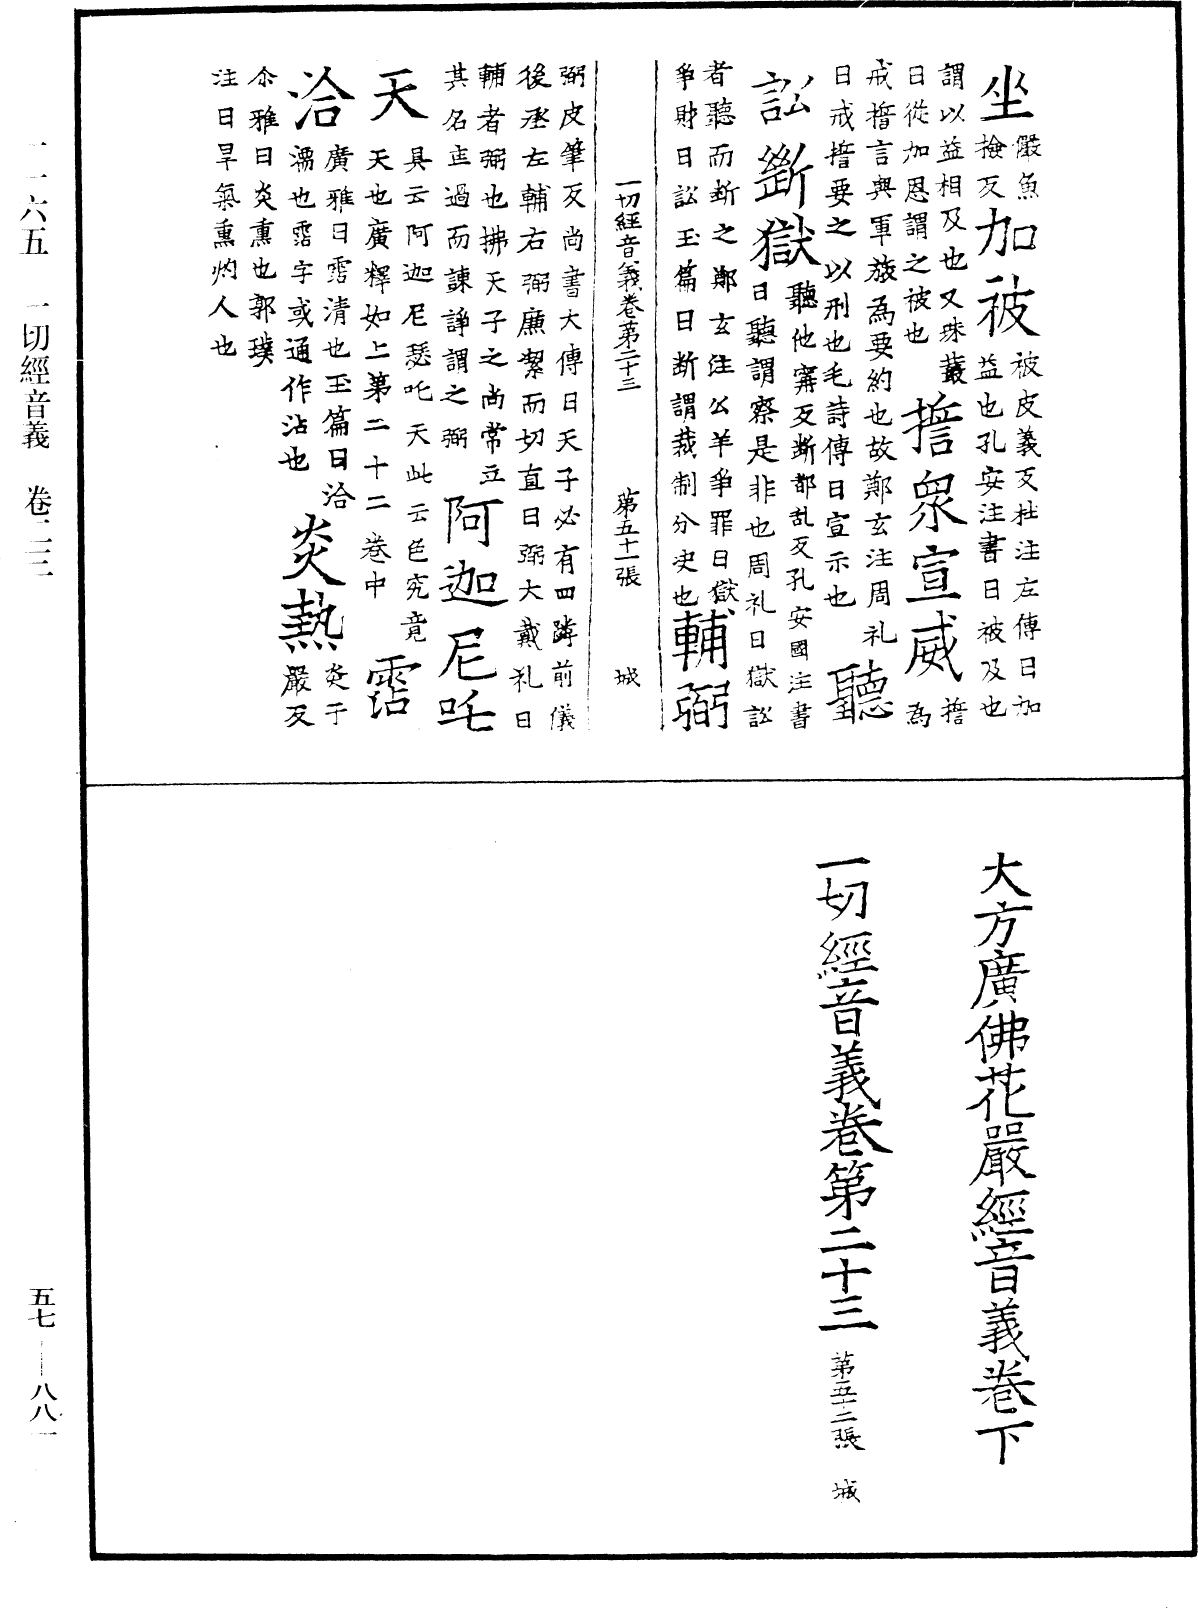 坐儼魚撿反加被被皮義反杜注左傳曰加益也孔安注書曰被及也
謂以益相及也又珠叢曰從加恩謂之被也𢷤眾宣威𢷤為
戒𢷤言與軍旅為要約也故鄭玄注周礼曰戒𢷤要之以刑也毛詩傳曰宣示也聽
訟斷獄聽他甯反斷都乱反孔安國注書曰聽謂察是非也周礼曰獄訟
者聽而斷之鄭玄注公羊爭罪曰獄爭財曰訟玉篇曰斷謂裁制分决也輔弼
一切經音義卷第二十三 第五十一張 城
弼皮筆反尚書大傳曰天子必有四隣前儀後丞左輔右弼廉絜而切直曰弼大戴礼曰
輔者弼也拂天子之尚常立其名查過而諫諍謂之弼阿迦尼吒
天具云阿迦尼瑟吒天此云色究竟天也廣釋如上第二十二卷中霑
洽廣雅曰霑漬也玉篇曰洽濡也霑字或通作沾也炎熱炎于嚴反
尒雅曰炎熏也郭璞注曰旱氣熏灼人也
大方廣佛花嚴經音義卷下
一切經音義卷第二十三 第五十二張 城
一一六五 一切經音義 卷二三
五七——八八一